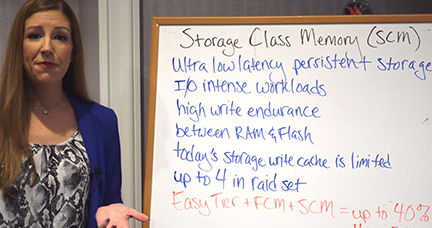 Storage Class Memory (SCM)
Ultra low latency persistent storage
I/O intense workloads
high write endurance
between RAM & Flash
today's storage write cache is limited
up to 4 in raid set
Easy Tier + FCM + SCM = up to 40%